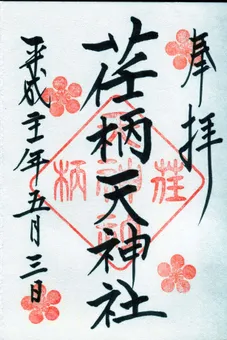 奉拝
荏柄天神社
平成二十一年五月三日
荏
柄